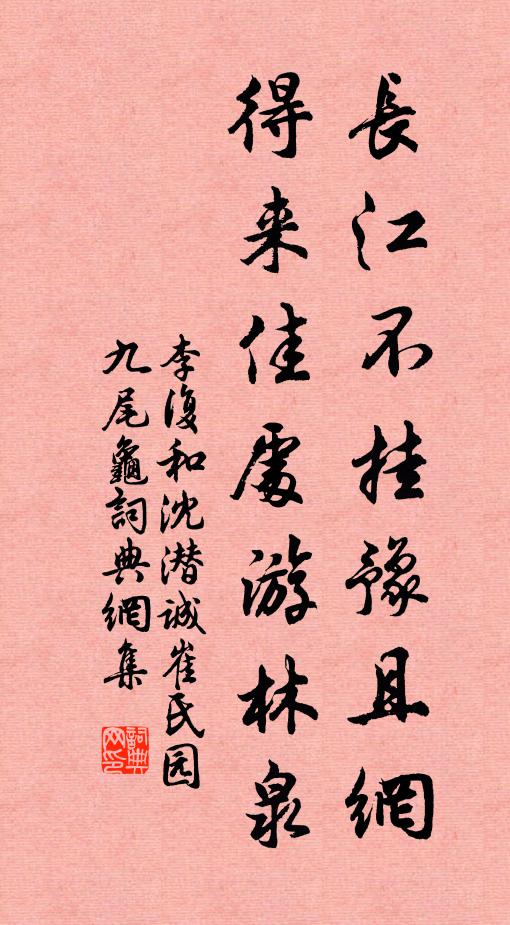 長江不挂豫且網
得来佳處游林泉
李復和沈潜诚崔氏园
九尾龜詞典網集
詞典网印